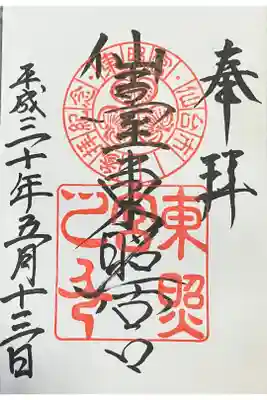 奉拝
仙臺東照宮
東照宮
平成三十年五月十三日